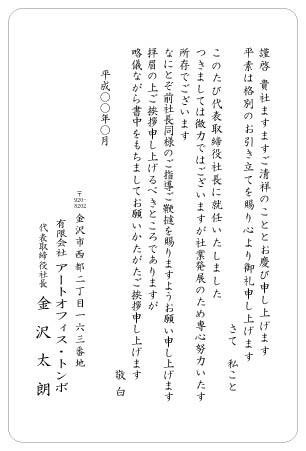 謹啓 貴社ますますご清祥のこととお慶び申し上げます
平素は格別のお引き立てを賜り心より御礼申し上げます
さて 私こと
このたび代表取締役社長に就任いたしました
つきましては微力ではございますが社業発展のため専心努力いたす
所存でございます
なにとぞ前社長同様のご指導ご鞭撻を賜りますようお願い申し上げます
拝眉の上ご挨拶申し上げるべきところでありますが
略儀ながら書中をもちましてお願いかたがたご挨拶申し上げます
敬白
平成○○年○月
〒920-8202 金沢市西都二丁目一六三番地
有限会社 アートオフィス・トンボ
代表取締役社長 金沢太朗